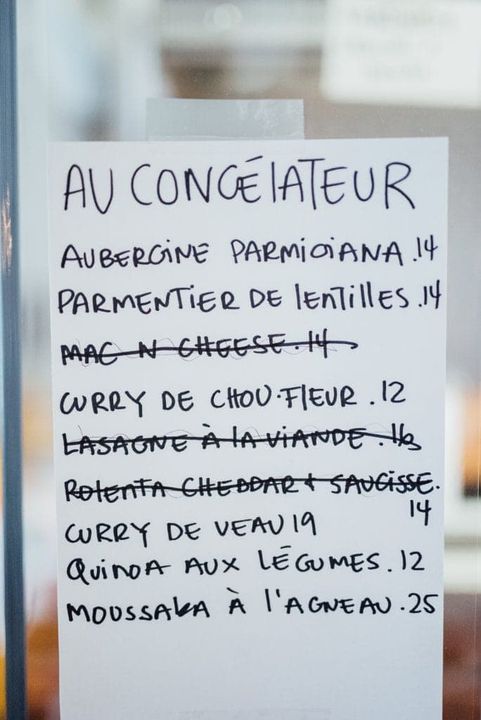 AU CONGÉLATEUR
AUBERGINE PARMIGIANA .14
PARMENTIER DE LENTILLES .14
MAC N CHEESE. 14
CURRY DE CHOU-FLEUR . 12
LASAGNE À LA VIANDE .
POLENTA CHEDDAR + SAUCISSE.
14
CURRY DE VEAU 19
QUINOA AUX LÉGUMES . 12
MOUSSAKA À L'AGNEAU . 25